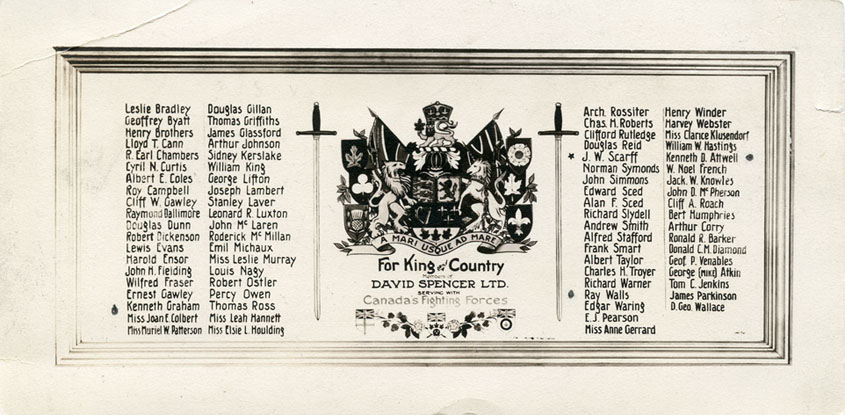 Leslie Bradley
Geoffrey Byatt
Henry Brothers
Lloyd T. Cann
R. Earl Chambers
Cyril N. Curtis
Albert E. Coles
Roy Campbell
Cliff W. Gawley
Raymond Dallimore
Douglas Dunn
Robert Dickenson
Lewis Evans
Harold Ensor
John H. Fielding
Wilfred Fraser
Ernest Gawley
Kenneth Graham
Miss Joan E. Colbert
Miss Muriel W. Patterson
Douglas Gillan
Thomas Griffiths
James Glassford
Arthur Johnson
Sidney Kerslake
William King
George Lifton
Joseph Lambert
Stanley Laver
Leonard R. Luxton
John Mc Laren
Roderick Mc Millan
Emil Michaux
Miss Leslie Murray
Louis Nagy
Robert Ostler
Percy Owen
Thomas Ross
Miss Leah Hannett
Miss Elsie L. Houlding
A MARI USQUE AD MARE
For King and Country
Members of
DAVID SPENCER LTD.
SERVING WITH
Canada's Fighting Forces
Arch. Rossiter
Chas. H. Roberts
Clifford Rutledge
Douglas Reid
J. W. Scarff
Norman Symonds
John Simmons
Edward Sced
Alan F. Sced
Richard Slydell
Andrew Smith
Alfred Stafford
Frank Smart
Albert Taylor
Charles H. Troyer
Richard Warner
Ray Walls
Edgar Waring
E. J. Pearson
Miss Anne Gerrard
Henry Winder
Harvey Webster
Miss Clarice Klusendorf
William W. Hastings
Kenneth D. Attwell
W. Noel French
Jack. W. Knowles
John D. McPherson
Cliff A. Roach
Bert Humphries
Arthur Corry
Ronald R. Barker
Donald C.M. Diamond
Geof. P. Venables
George (Mike) Atkin
Tom C. Jenkins
James Parkinson
D. Geo. Wallace